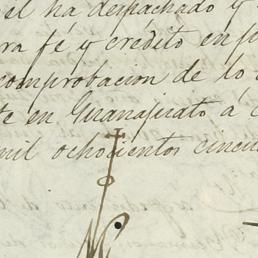 el ha despachado y
fé y credito en
comprobacion de lo
te en Guanajuato á
mil ochocientos